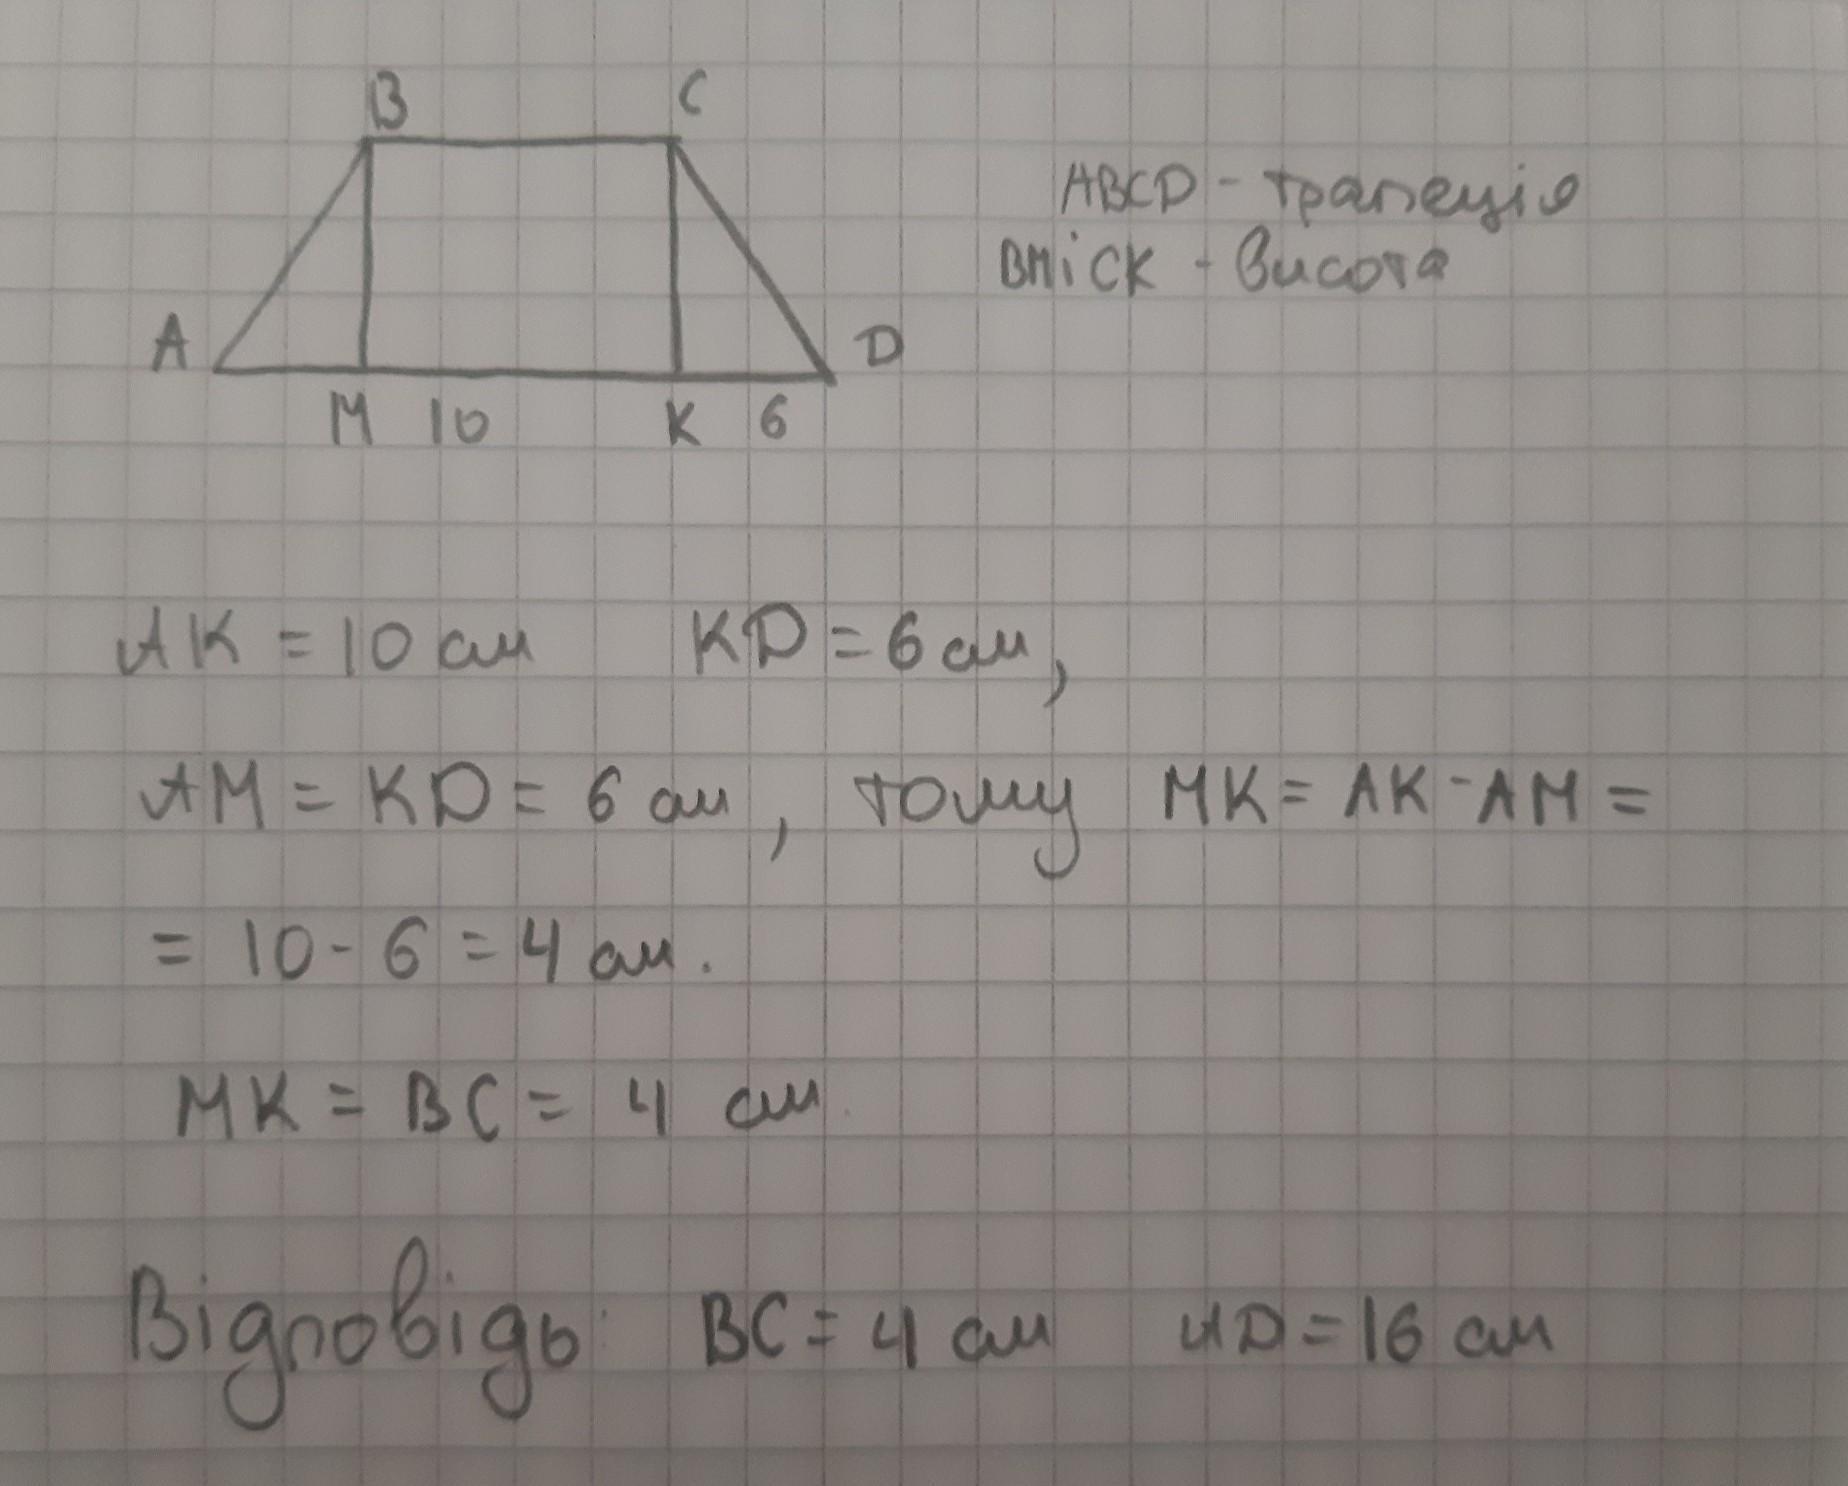 B C
ABCD - трапеція
BM і CK - висота
A D
M 10 K 6
AK = 10 см KD = 6 см,
AM = KD = 6 см, тому MK = AK - AM =
= 10 - 6 = 4 см.
MK = BC = 4 см
Відповідь: BC = 4 см AD = 16 см